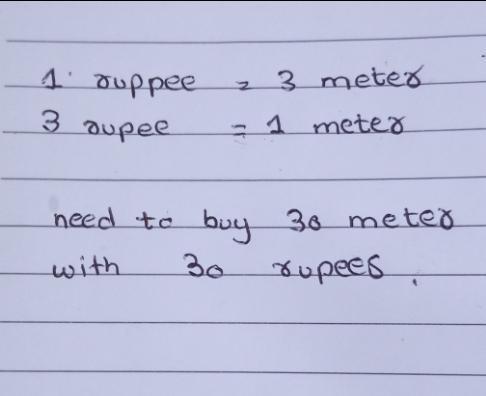 1 ruppee = 3 meter
3 rupee = 1 meter
need to buy 30 meter
with 30 rupees.